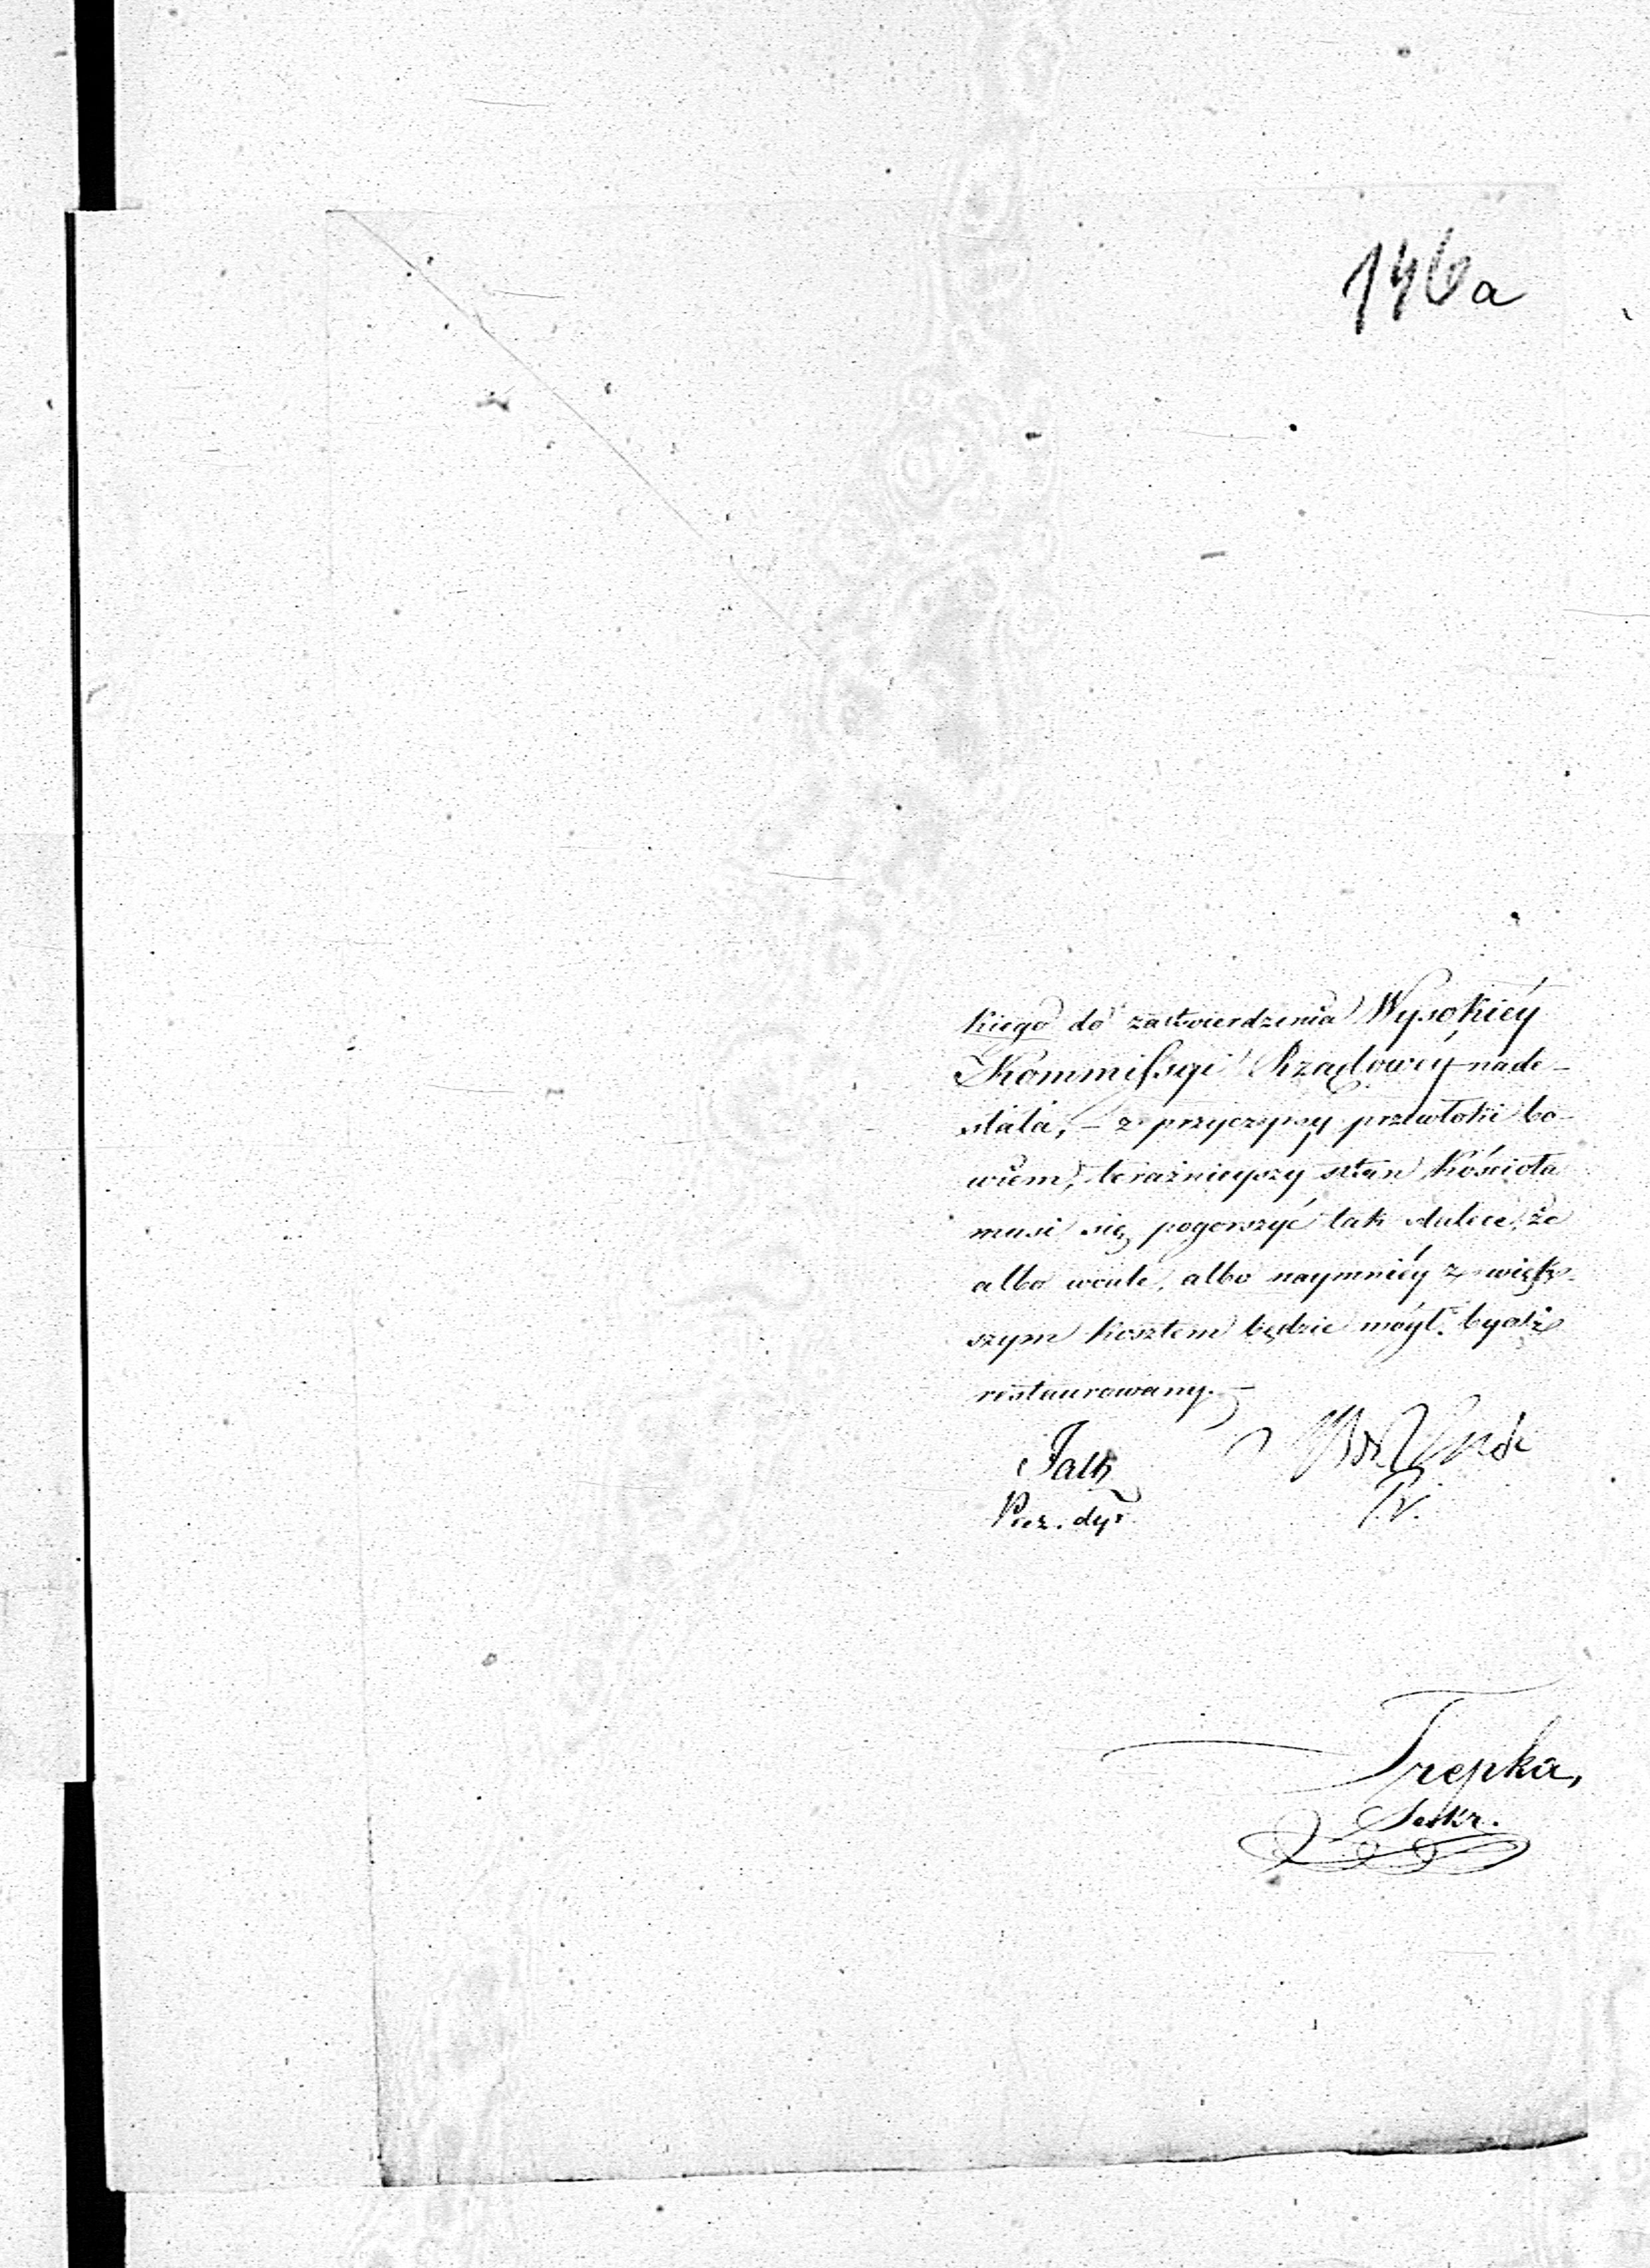 146a
kiego do zatwierdzenia Wysokiéy
Kommissyi Rządowéy nade-
słała, – z przyczyny przewłoki bo-
wiem, teraźnieyszy stan Kościoła
musi się pogorszyć tak dalece, że
albo wcale, albo naymniéy z więk-
szym kosztem będzie mógł bydź
restaurowany. –
Falk
Prez. dyr
Trepka,
Sekr.